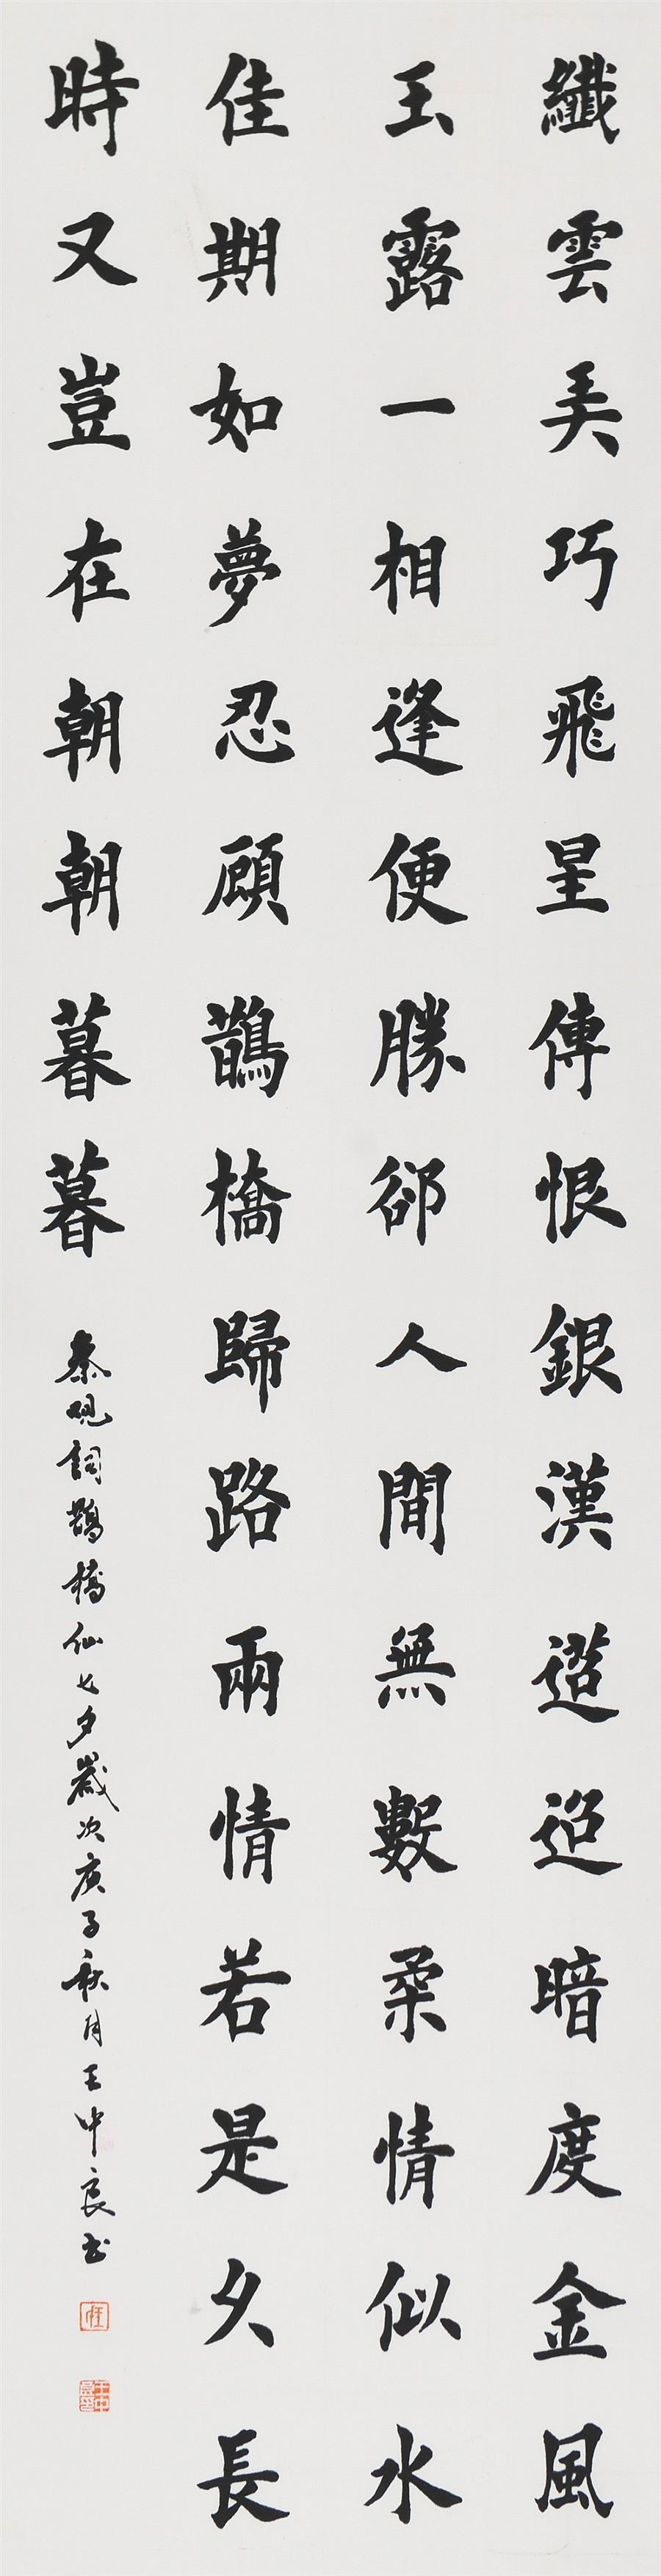 纖雲弄巧飛星傳恨銀漢迢迢暗度金風
玉露一相逢便勝郤人間無數柔情似水
佳期如夢忍顧鵲橋歸路兩情若是久長
時又豈在朝朝暮暮
秦觀詞鵲橋仙七夕歲次庚子秋月王中良書
王中良印